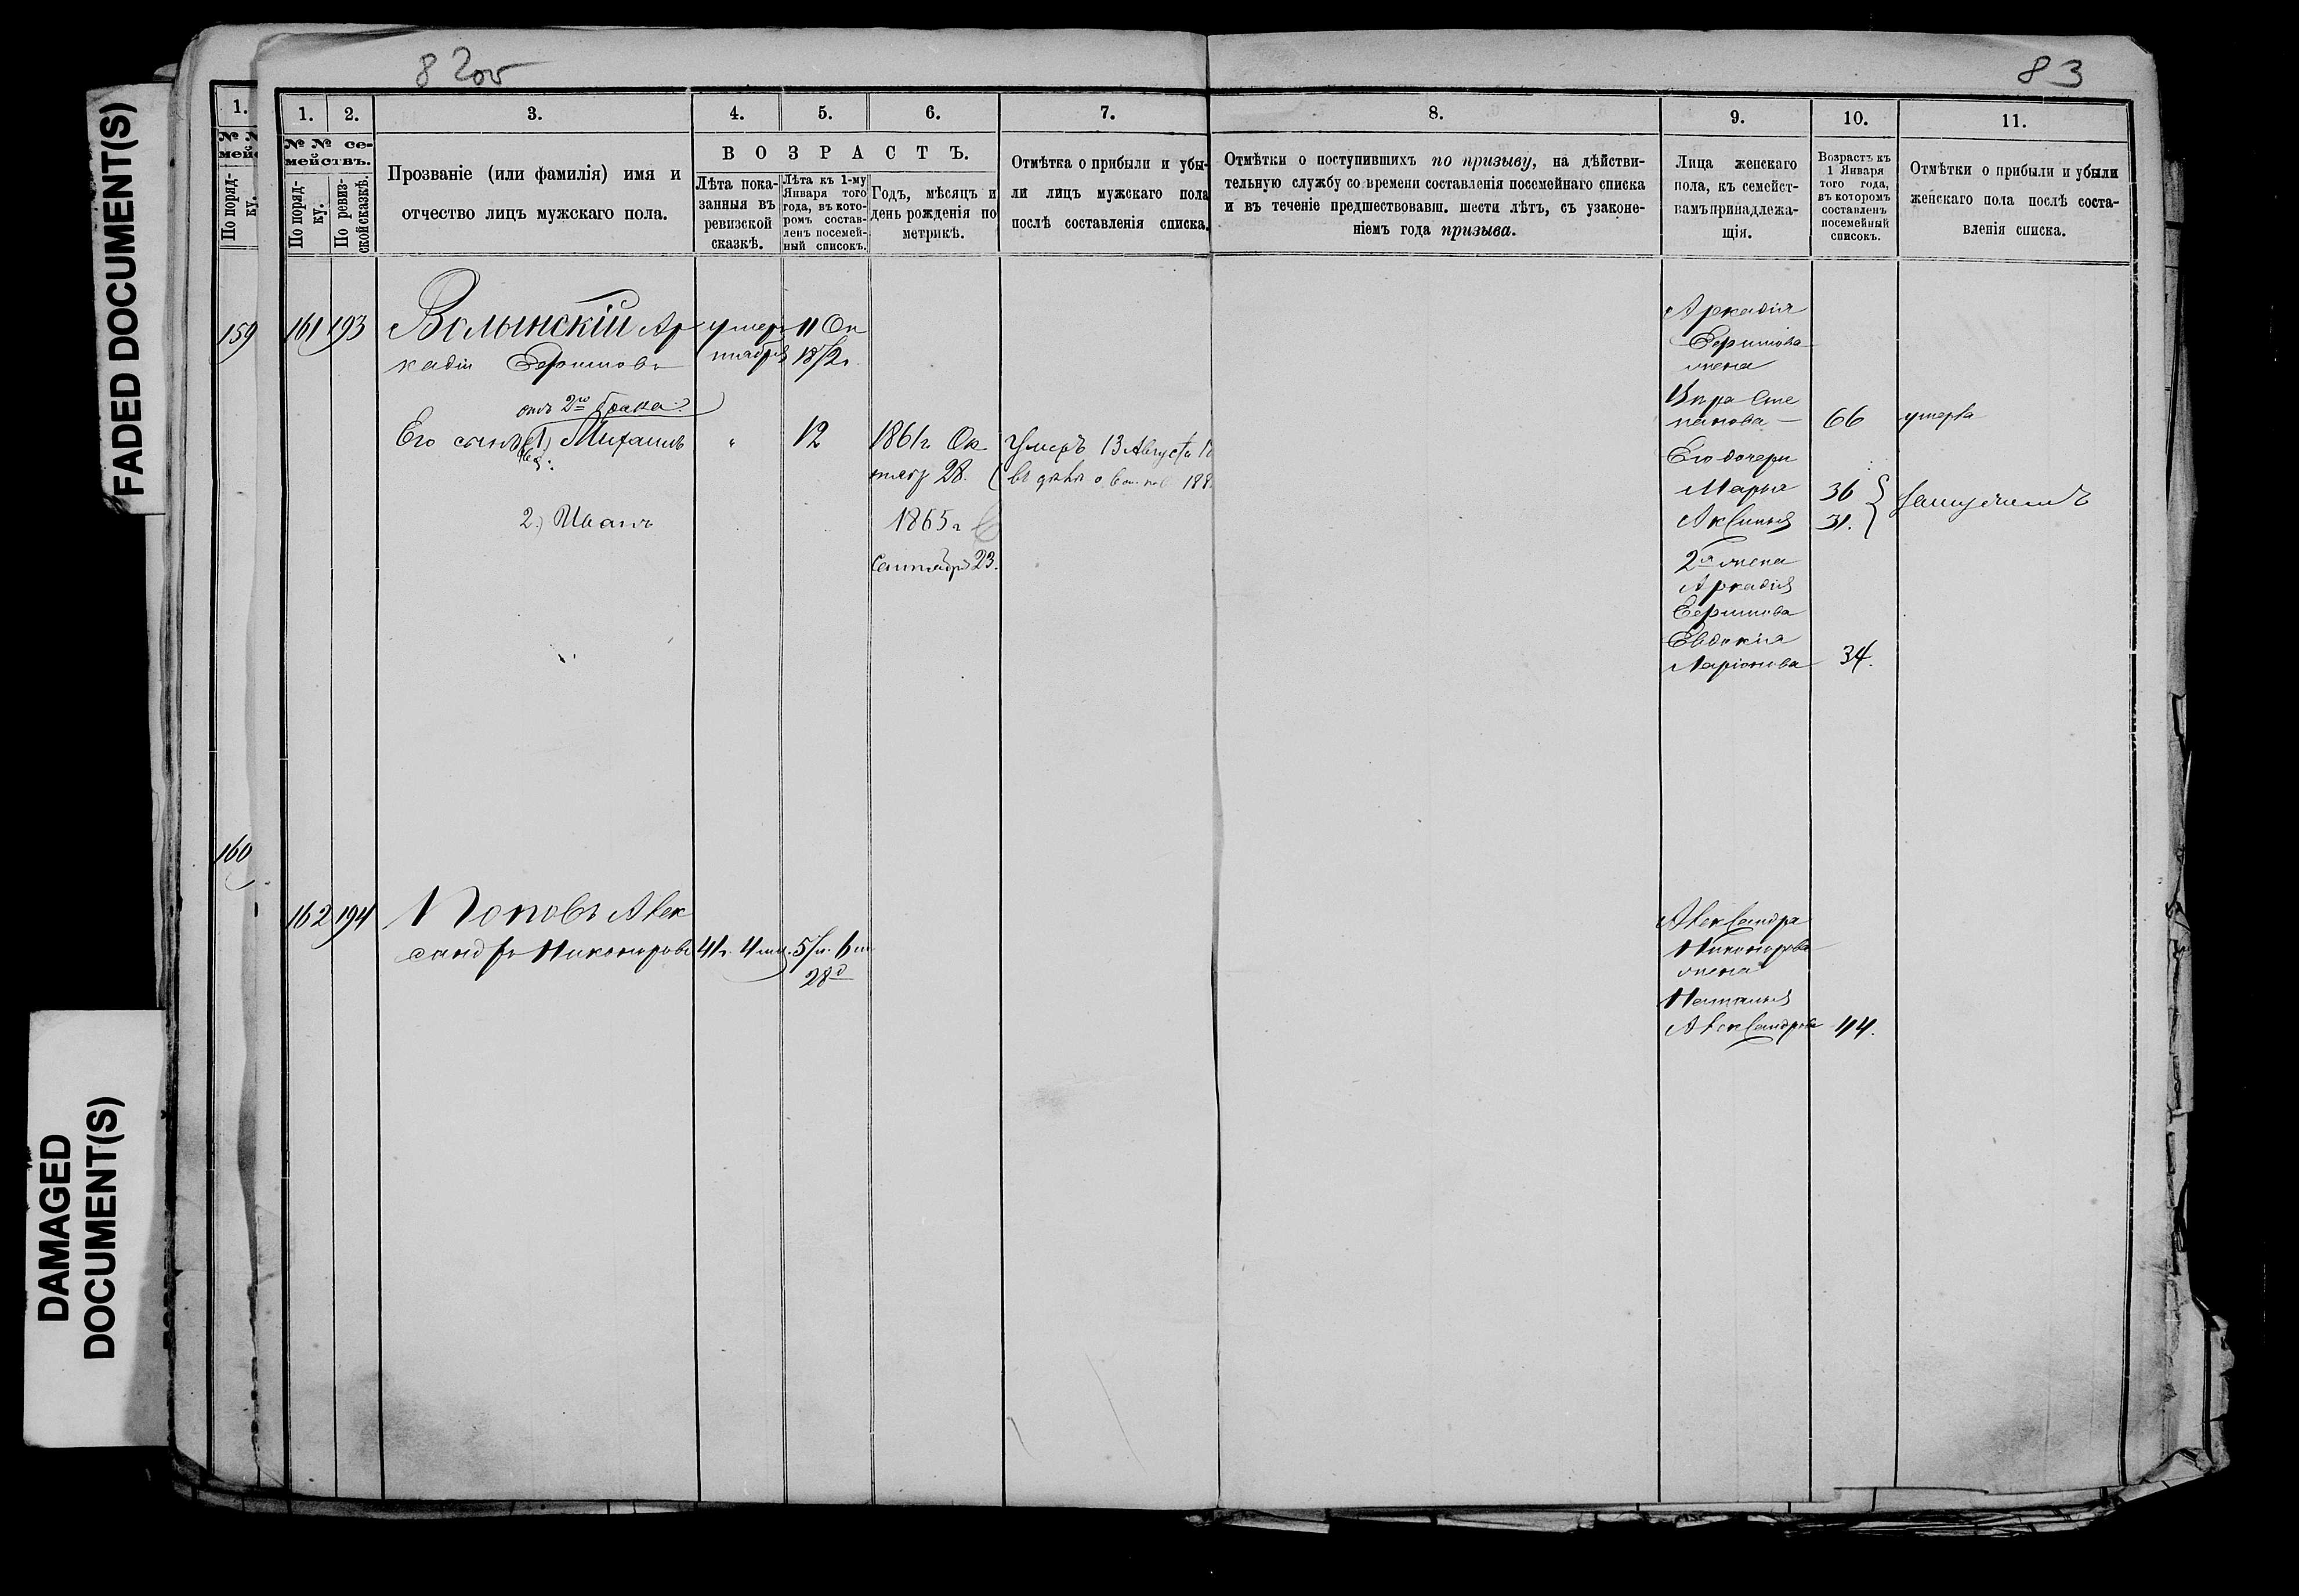 FADED DOCUMENT(S)
DAMAGED
DOCUMENT(S)
82 об
83
1.
159
160
1. 2. 3. 4. 5. 6. 7. 8. 9. 10. 11.
№ № се-
мействъ.
По поряд-
ку.
По ревиз-
ской сказкѣ.
Прозваніе (или фамилія) имя и
отчество лицъ мужскаго пола.
ВОЗРАСТЪ.
Лѣта пока-
занныя въ
ревизской
сказкѣ.
Лѣта къ 1-му
Января того
года, въ кото-
ромъ состав-
ленъ посемей-
ный списокъ.
Годъ, мѣсяцъ и
день рожденія по
метрикѣ.
Отмѣтка о прибыли и убы-
ли лицъ мужскаго пола
послѣ составленія списка.
Отмѣтки о поступившихъ по призыву, на дѣйстви-
тельную службу со времени составленія посемейнаго списка
и въ теченіе предшествовавш. шести лѣтъ, съ узаконе-
ніемъ года призыва.
Лица женскаго
пола, къ семейст-
вамъ принадлежа-
щія.
Возрастъ къ
1 Января
того года,
въ которомъ
составленъ
посемейный
списокъ.
Отмѣтки о прибыли и убыли
женскаго пола послѣ соста-
вленія списка.
161 193 Волынскій Ар умеръ 11 Ок
кадій тября
отъ 2го брака
Его сынъ 1) Михаилъ " 12 1861 г. Ок
тяб 28.
Умеръ 13 Августа
2.) Иванъ 1865 г
Сентября 23.
Аркадія
жена
Вѣра Сте
панова 66 умерла
Его дочери
Марья 36
Аксинья 31. } замужемъ
2я жена
Аркадія
Евдокія
Ларіонова 34.
162 194 Поповъ Алек
сандръ Никоноровъ 41 г. 4 м.
28 д
Александра
Никонорова
жена
Наталья
Александрова 44.